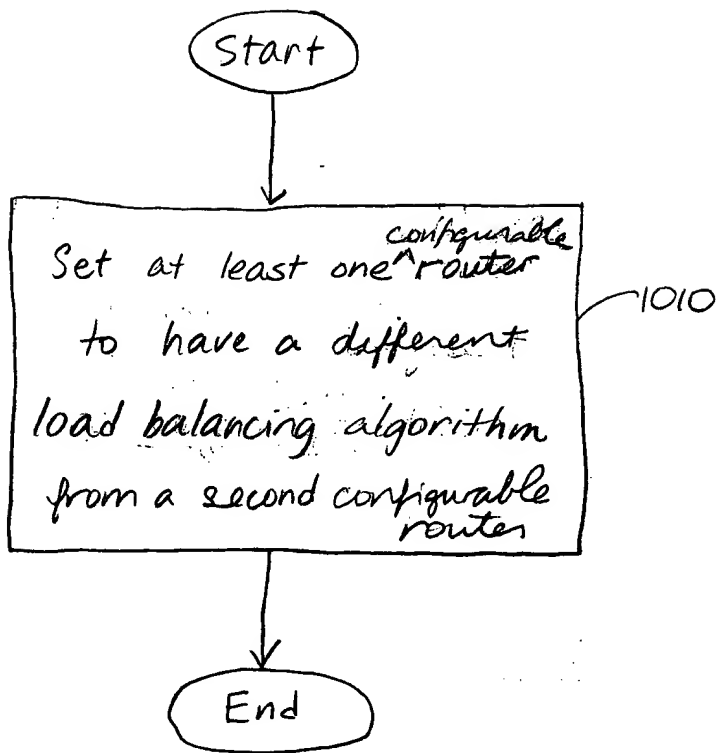 Start
Set at least one ^configurable router
to have a different
load balancing algorithm
from a second configurable
router
1010
End